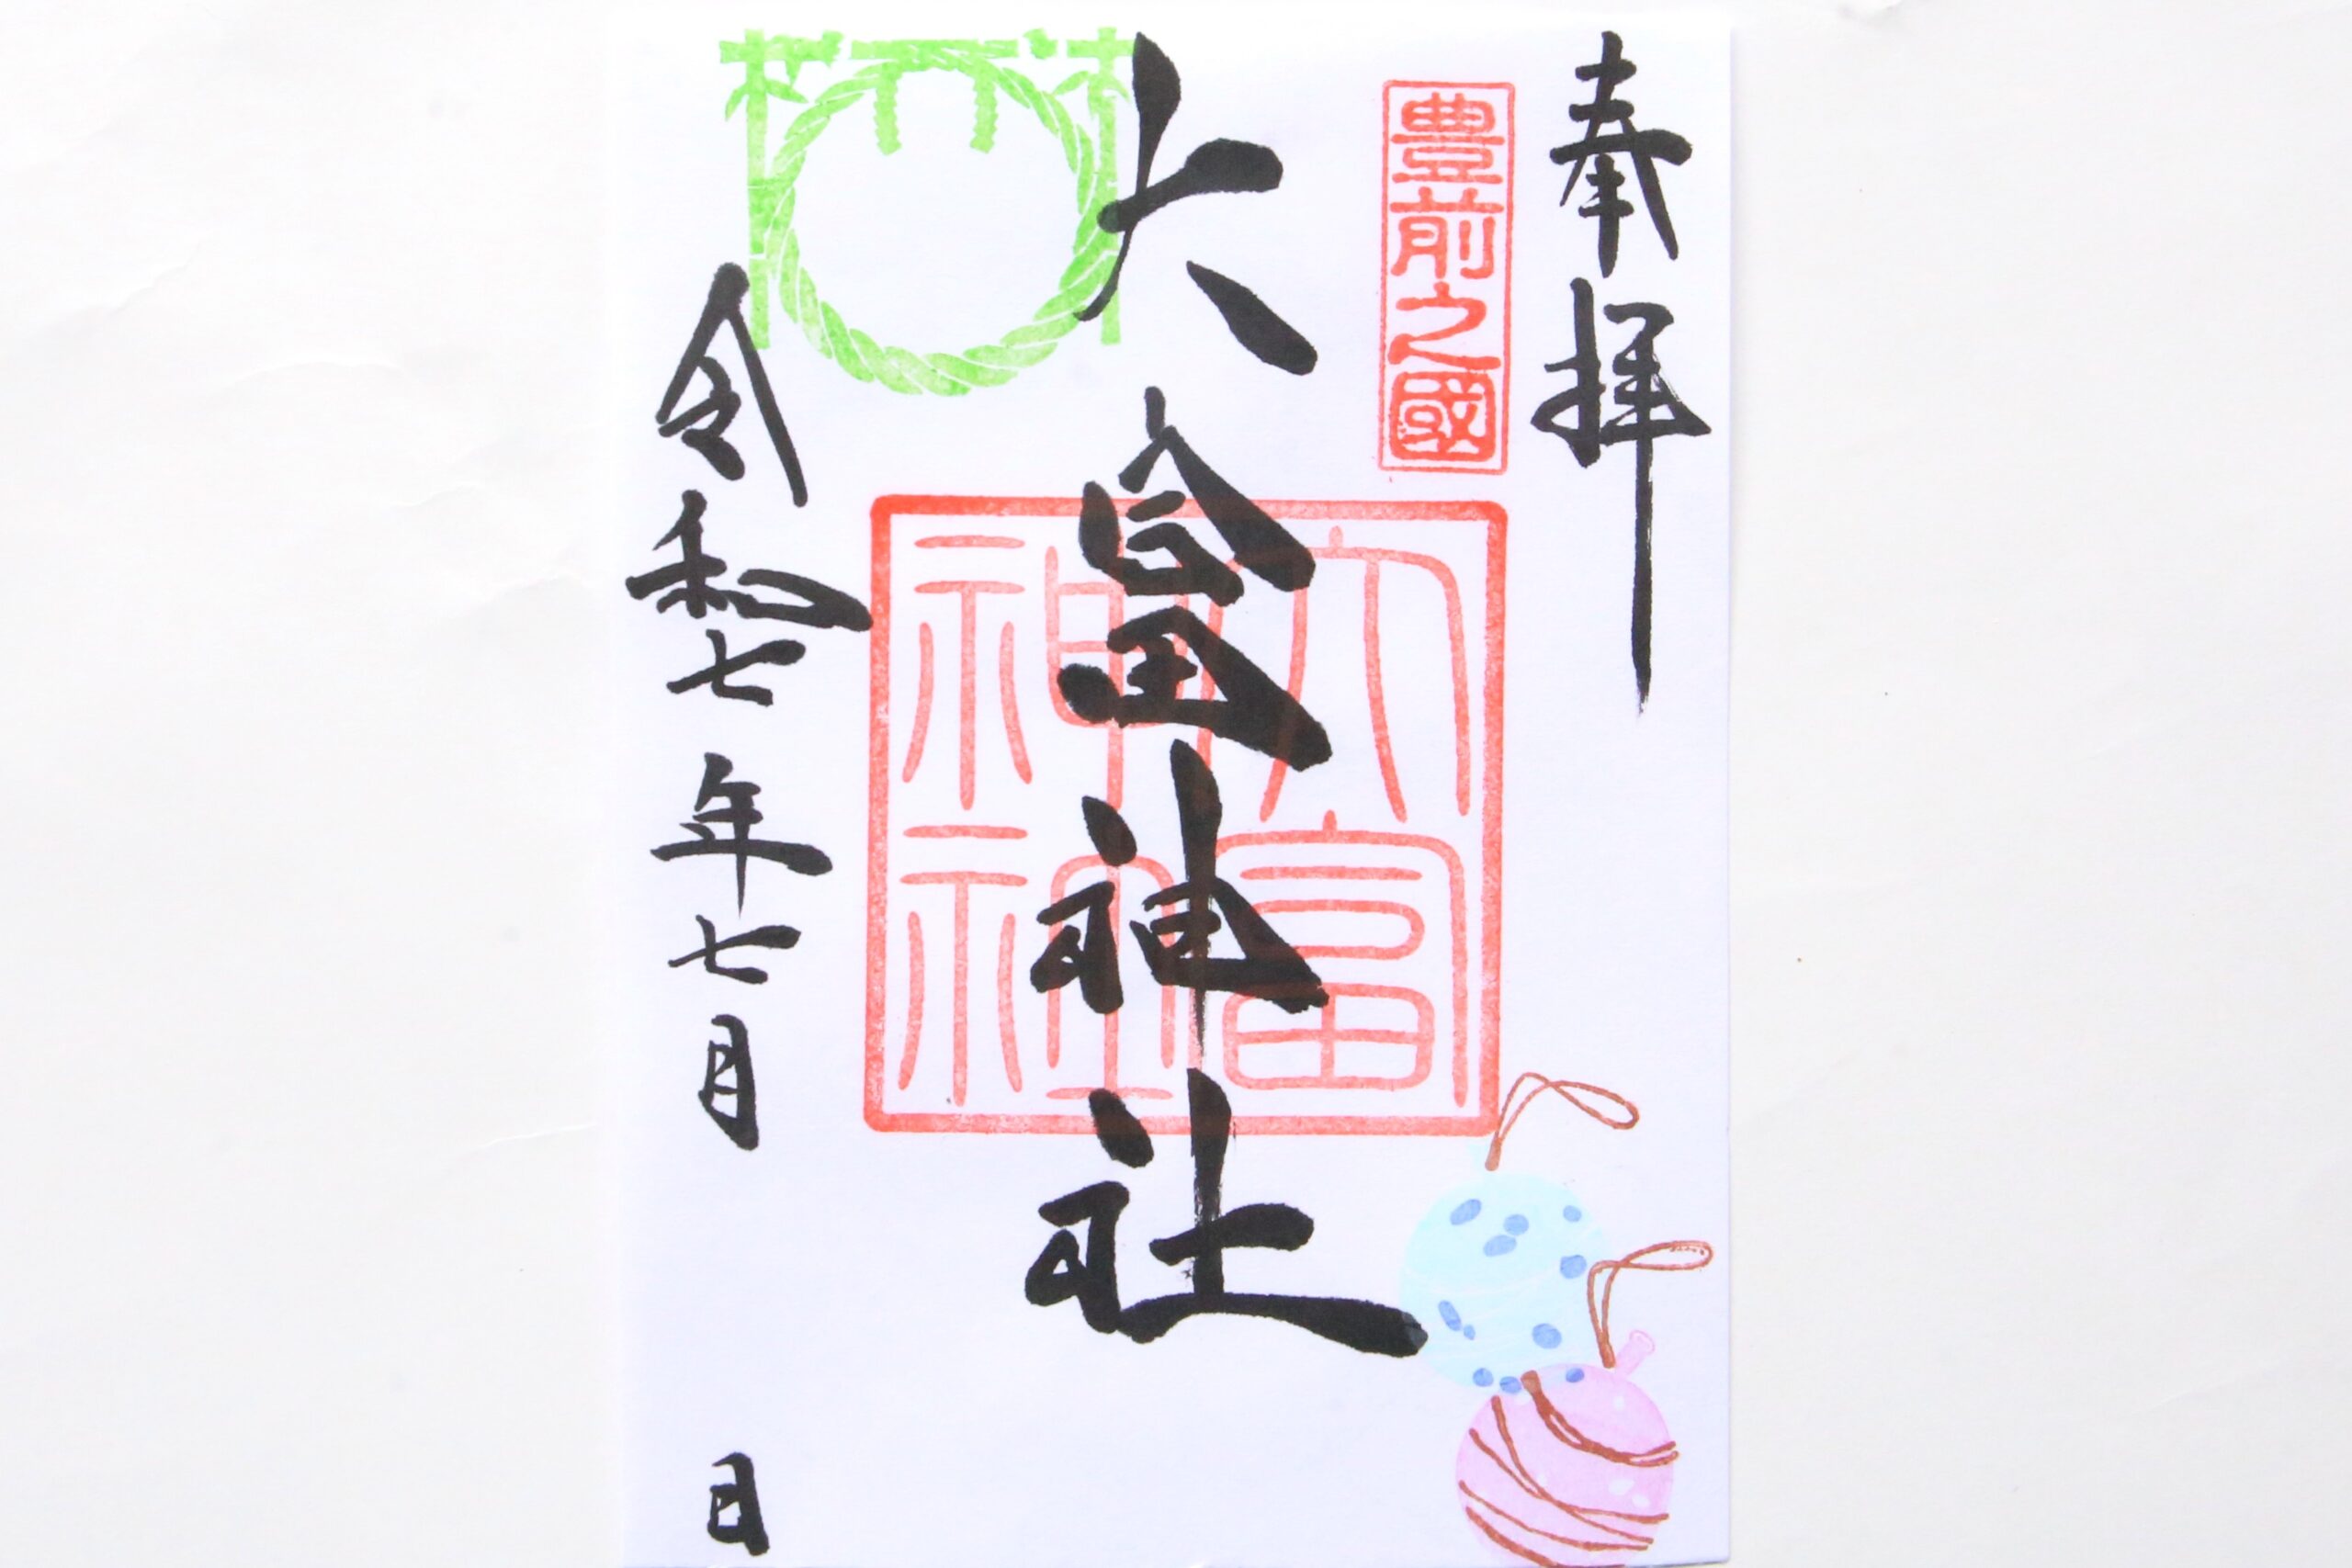 奉拝
豊前之國
大富神社
大富
神社
令和七年七月 日